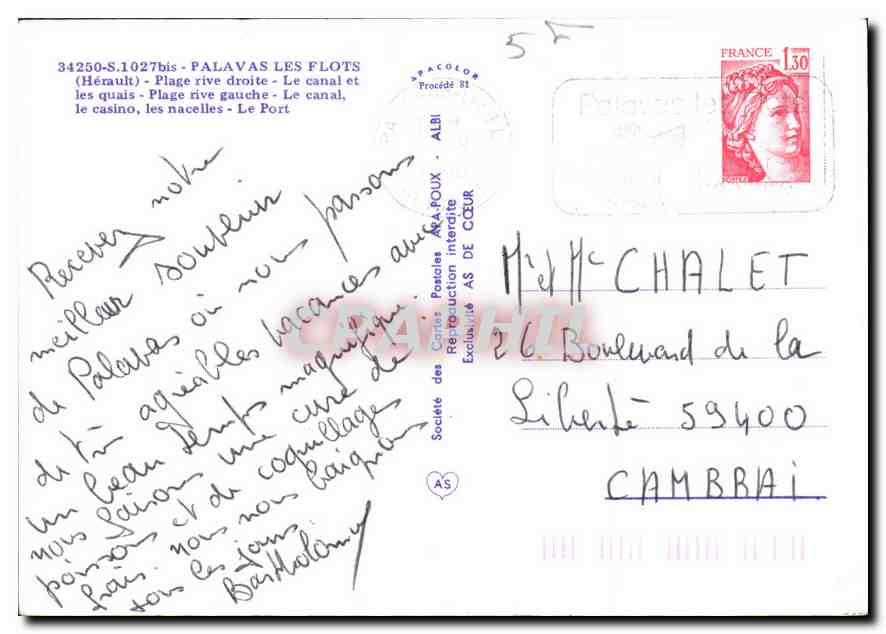 34250-S.1027bis - PALAVAS LES FLOTS
(Hérault) - Plage rive droite - Le canal et
les quais - Plage rive gauche - Le canal,
le casino, les nacelles - Le Port
APACOLOR
Procédé 81
FRANCE 1,30
POSTES
Palavas les
Recevez notre
meilleur souvenir
de Palavas où nous passons
de très agréables vacances avec
un beau temps magnifique.
nous faisons une cure de
poissons et de coquillages
frais. nous nous baignons
tous les jours.
Bartholomey
Société des Cartes Postales APA-POUX - ALBI
Reproduction interdite
Exclusivité AS DE CŒUR
AS
CPAPHIL
Mr et Me CHALET
26 Boulevard de la
Liberté 59400
CAMBRAI